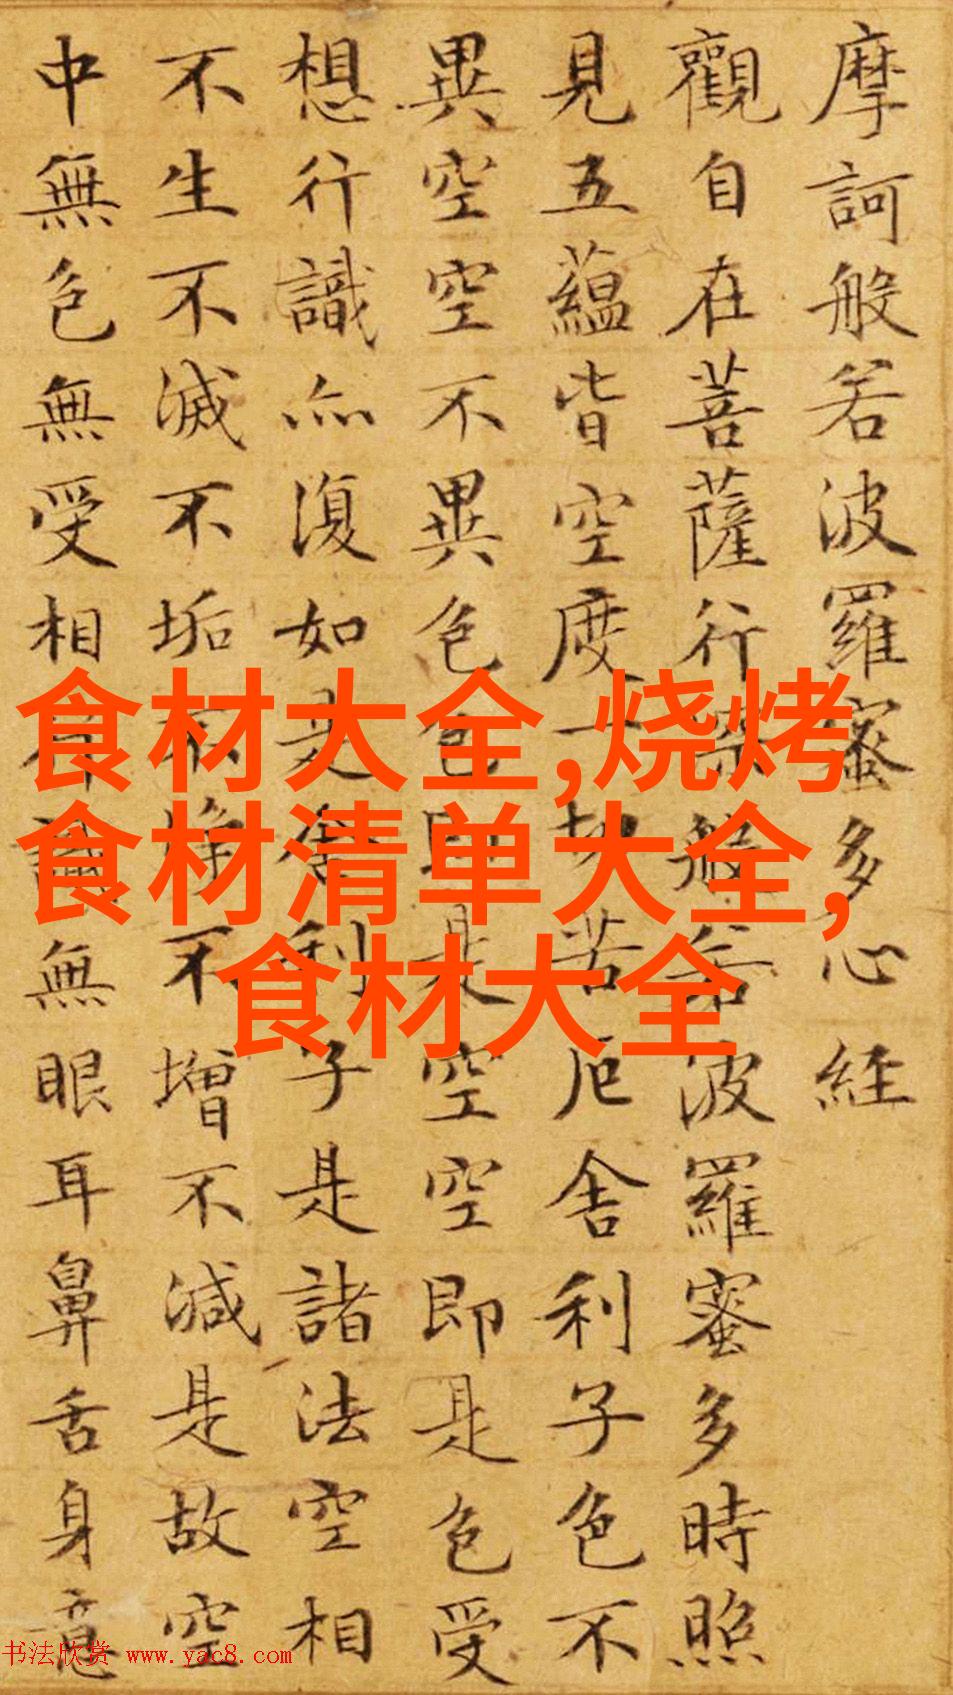 摩訶般若波羅蜜多心経
觀自在菩薩行深般若波羅蜜多時照
見五蘊皆空度一切苦厄舍利子色不
異空空不異色色即是空空即是色受
想行識亦復如是舍利子是諸法空相
不生不滅不垢不淨不增不減是故空
中無色無受相行識無眼耳鼻舌身意
食材大全,烧烤
食材清单大全,
食材大全
书法欣赏 www.yac8.com